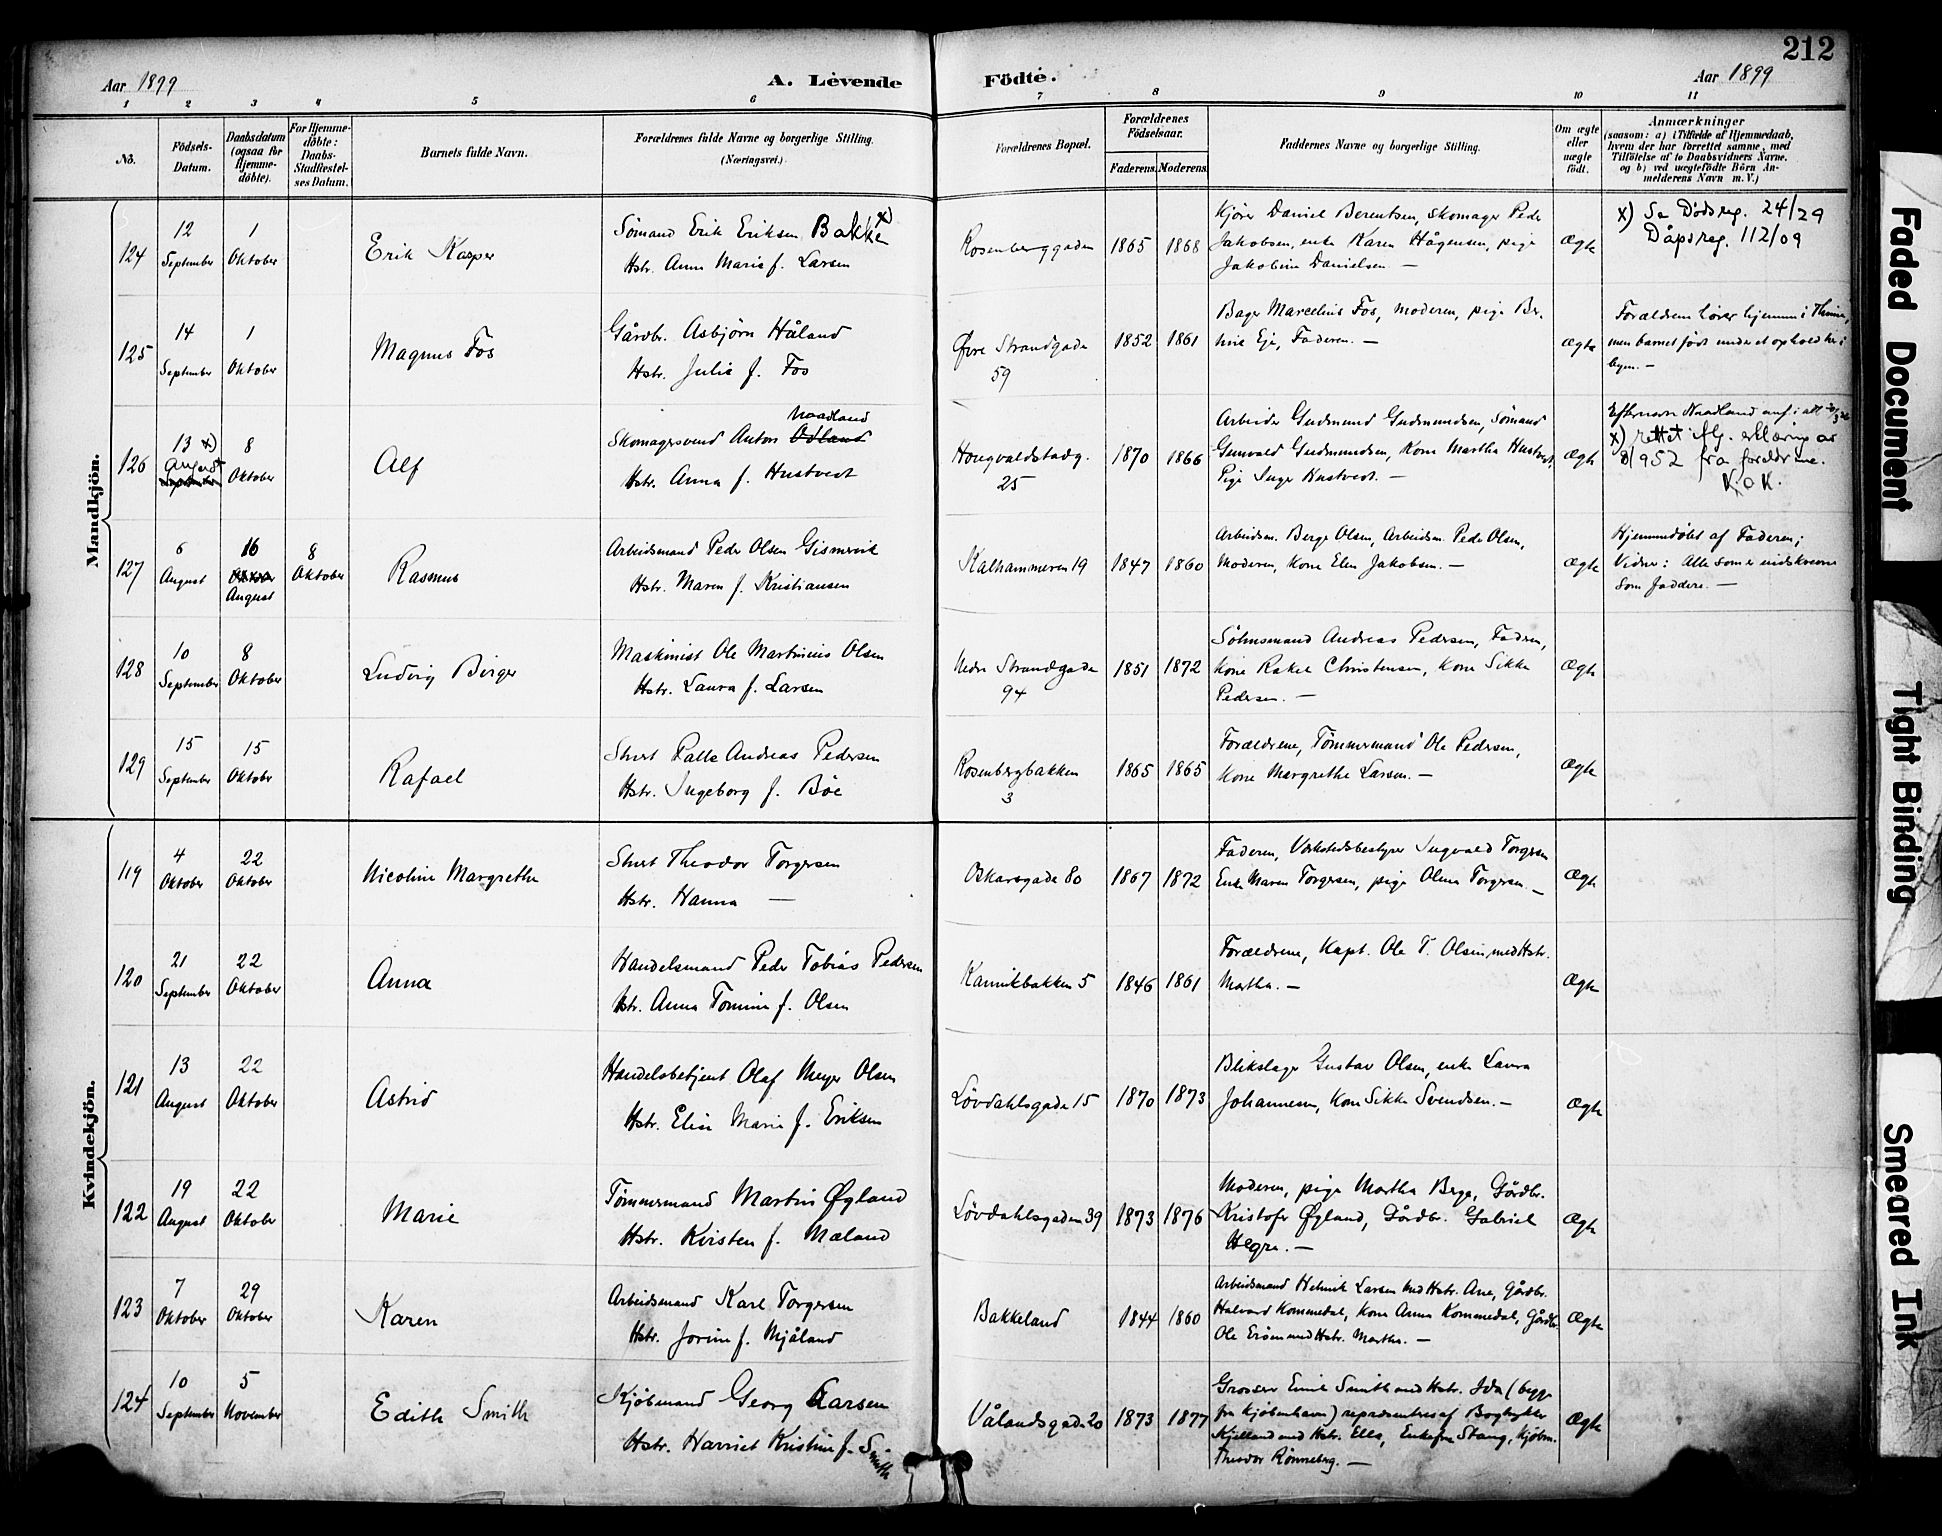 212
Aar 1899 A. Levende Födte. Aar 1899
1 2 3 4 5 6 7 8 9 10 11
No.
Födsels-Datum.
Daabsdatum (ogsaa för Hjemme-döbte).
For Hjemme-döbte: Daabs-Stadfæstel-ses Datum.
Barnets fulde Navn.
Forældrenes fulde Navne og borgerlige Stilling. (Næringsvei.)
Forældrenes Bopæl.
Forældrenes Födselsaar.
Faderens. Moderens.
Faddernes Navne og borgerlige Stilling.
Om ægte eller uægte födt.
Anmærkninger
(saasom: a) i Tilfælde af Hjemmedaab, hvem der har forrettet samme, med Tilföielse af to Daabsvidners Navne, og b) ved uægtefödte Börn An-melderens Navn m. V.)
Mandkjön.
124
12 September
1 Oktober
Erik Kasper
Sömand Erik Eriksen Bakken x)
Hstr. Anna Marie f. Larsen
Rosenberggaden
1865 1868
Kjörer Daniel Berentsen, skomager Peder
Jakobsen, enke Karen Hågensen, pige
Jakobine Danielsen. —
Ægte
x) Se Dödsreg. 24/29
Dåpsreg. 112/09
125
14 September
1 Oktober
Magnus Fos
Gårdbr. Asbjörn Håland
Hstr. Julie f. Fos
Øvre Strandgade
59
1852 1861
Bager Marcelius Fos, Moderen, pige Ber-
tine Eje, Faderen. —
Ægte
Forældrene hører hjemme i Thime,
men barnet født under et ophold her i
byen. —
126
13 x) August
8 Oktober
Alf
Naadland
Skomagersvend Anton Odland
Hstr. Anna f. Hustvedt
Hougvaldstadg.
25
1870 1866
Arbeider Gudmund Gudmundsen, Sömand
Gunvald Gudmundsen, Kone Martha Hustvedt,
Pige Inger Hustvedt. —
Ægte
Efternavn Naadland anf. i
x) rettet iflg. erklæring av
8/952 fra foreldrene.
K.O.K.
127
6 August
16 August
8 Oktober
Rasmus
Arbeidsmand Peder Olsen Gismervik
Hstr. Maren f. Kristiansen
Kalhammeren 19
1847 1860
Arbeidsm. Berge Olsen, Arbeidsm. Peder Olsen,
Moderen, Kone Elen Jakobsen. —
Ægte
Hjemmedöbt af Faderen;
Vidner: Alle som er indskrevne
som faddere. —
128
10 September
8 Oktober
Ludvig Birger
Maskinist Ole Martinius Olsen
Hstr. Laura f. Larsen
Nedre Strandgade
94
1851 1872
Andreas Pedersen, Faderen,
Kone Rakel Christensen, Kone Sikke
Pedersen. —
Ægte
129
15 September
15 Oktober
Rafael
Stuert Palle Andreas Pedersen
Hstr. Ingeborg f. Böe
Rosenbergbakken
3
1865 1865
Forældrene, Tømmermand Ole Pedersen,
Kone Margrethe Larsen. —
Ægte
Kvindekjön.
119
4 Oktober
22 Oktober
Nicoline Margrethe
Stuert Theodor Torgersen
Hstr. Hanna —
Oskarsgade 80
1867 1872
Faderen, Værkstedsbestyrer Ingvald Torgersen
Enke Maren Torgersen, pige Olena Torgersen. —
Ægte
120
21 September
22 Oktober
Anna
Handelsmand Peder Tobias Pedersen
Hstr. Anna Tomine f. Olsen
Kannikbakken 5
1846 1861
Forældrene, Kapt. Ole T. Olsen med Hstr.
Martha. —
Ægte
121
13 August
22 Oktober
Astrid
Handelsbetjent Olaf Meyer Olsen
Hstr. Elise Marie f. Eriksen
Lövdahlsgade 15
1870 1873
Blikslager Gustav Olsen, enke Laura
Johannesen, Kone Sikke Svendsen. —
Ægte
122
19 August
22 Oktober
Marie
Tømmermand Martin Øgland
Hstr. Kirsten f. Mæland
Lövdahlsgaden 39
1873 1876
Moderen, pige Martha Berge, Gårdbr.
Kristofer Øgland, Gårdbr. Gabriel
Hegre. —
Ægte
123
7 Oktober
29 Oktober
Karen
Arbeidsmand Karl Torgersen
Hstr. Jorine f. Mjåland
Bakkeland
1844 1860
Arbeidsmand Henrik Larsen med Hstr. Ane, Gårdbr.
Halvard Kommedal, Kone Anna Kommedal, Gårdbr.
Ole med Hstr. Martha. —
Ægte
124
10 September
5 November
Edith Smith
Kjöbmand Georg Larsen
Hstr. Harriet Kristine f. Smith
Vålandsgade 20
1873 1877
Grosserer Emil Smith med Hstr. Ida (begge
fra Kjøbenhavn) repræsenteres af Bogtrykker
Kjelland med Hstr. Ella, Enkefru Stang, Kjøbm.
Theodor Rönneberg. —
Ægte
Faded Document
Tight Binding
Smeared Ink